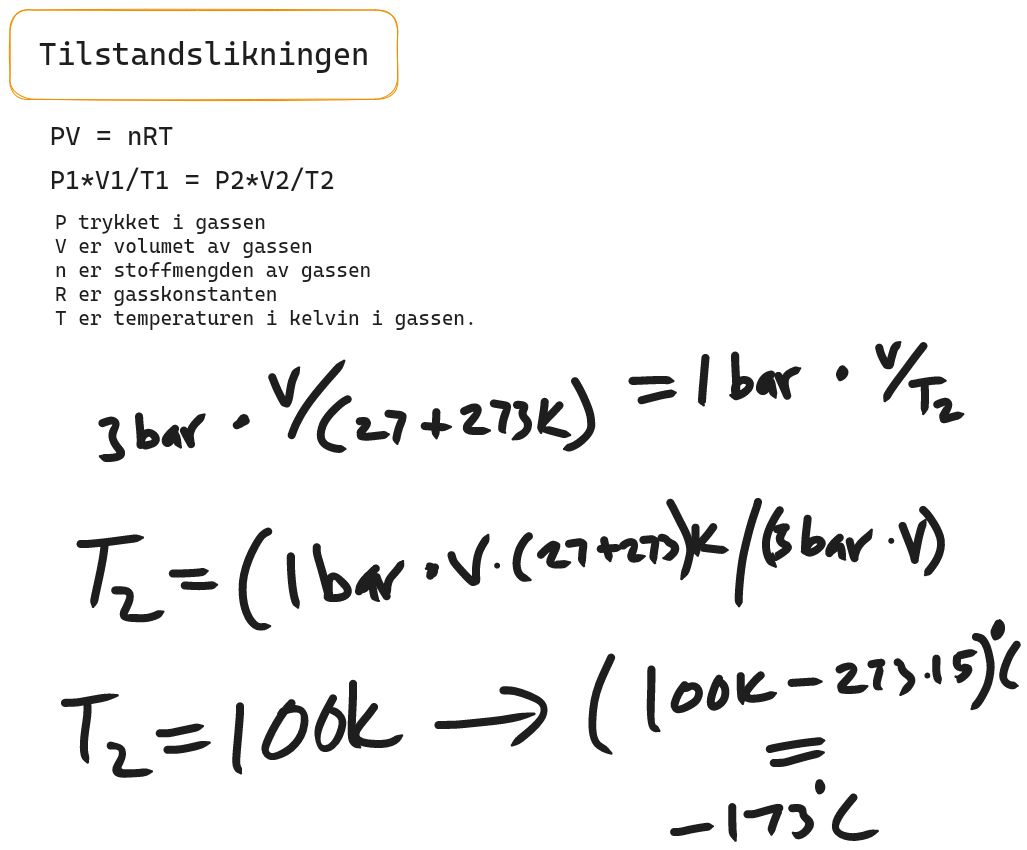 Tilstandslikningen
PV = nRT
P1*V1/T1 = P2*V2/T2
P trykket i gassen
V er volumet av gassen
n er stoffmengden av gassen
R er gasskonstanten
T er temperaturen i kelvin i gassen.
3 bar · V/(27+273K) = 1 bar · V/T₂
T₂ = (1 bar · V · (27+273)K/(3 bar · V)
T₂ = 100K → (100K - 273.15)°C
=
-173°C